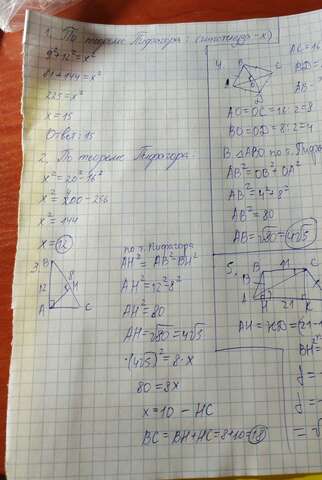 1. По теореме Пифагора: (гипотенуза - x)
9²+12²=x²
81+144=x²
225=x²
x=15
Ответ: 15
2. По теореме Пифагора:
x²=20²-16²
x²=400-256
x²=144
x=12
3.
B
12
8
H
A
C
по т. Пифагора
AH²=AB²-BH²
AH²=12²-8²
AH²=80
AH=√80=4√5
(4√5)²=8·x
80=8x
x=10 - HC
BC=BH+HC=8+10=18
4
AC=16
BD=
AB=
AO=OC=16:2=8
BO=OD=8:2=4
В △ABO по т. Пифаг
AB²=OB²+OA²
AB²=4²+8²
AB²=80
AB=√80=4√5
5.
B
11
C
A
H
21
K
AH=KD=(21-1
BH²=
=√